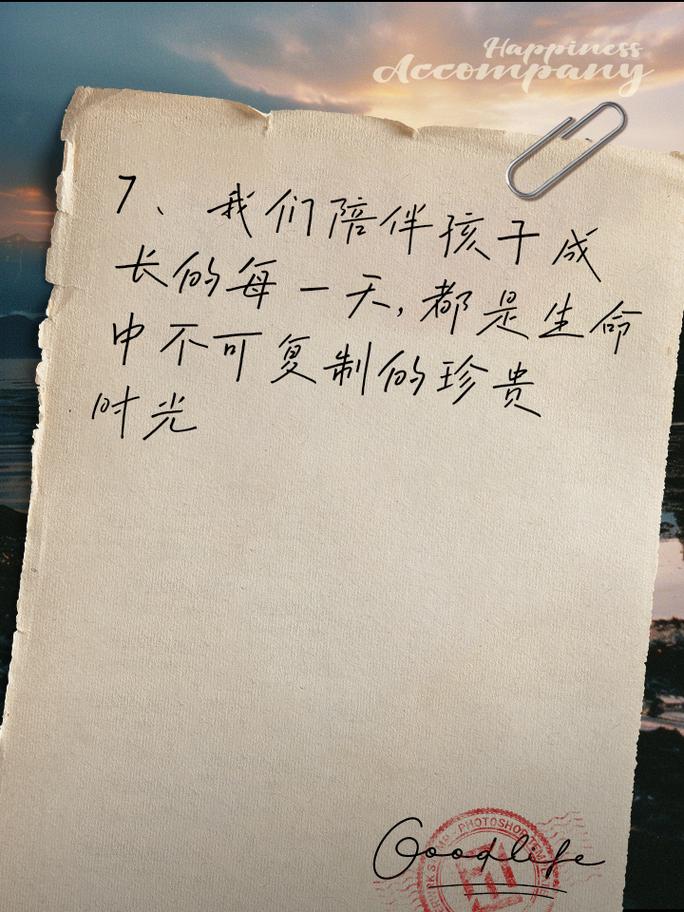 Happiness
Accompany
7、我们陪伴孩子成
长的每一天,都是生命
中不可复制的珍贵
时光
PHOTOSHOP
Goodlife